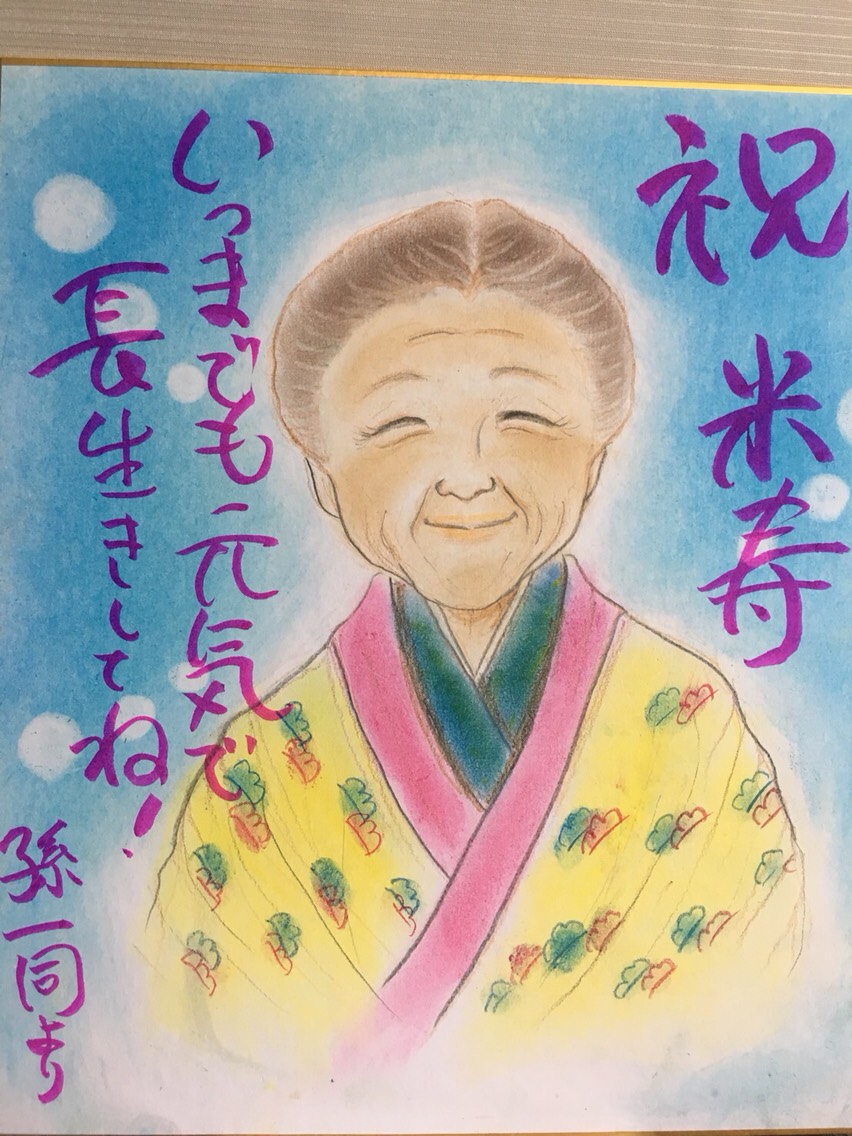 祝 米寿
いつまでも元気で
長生きしてね!
孫一同より